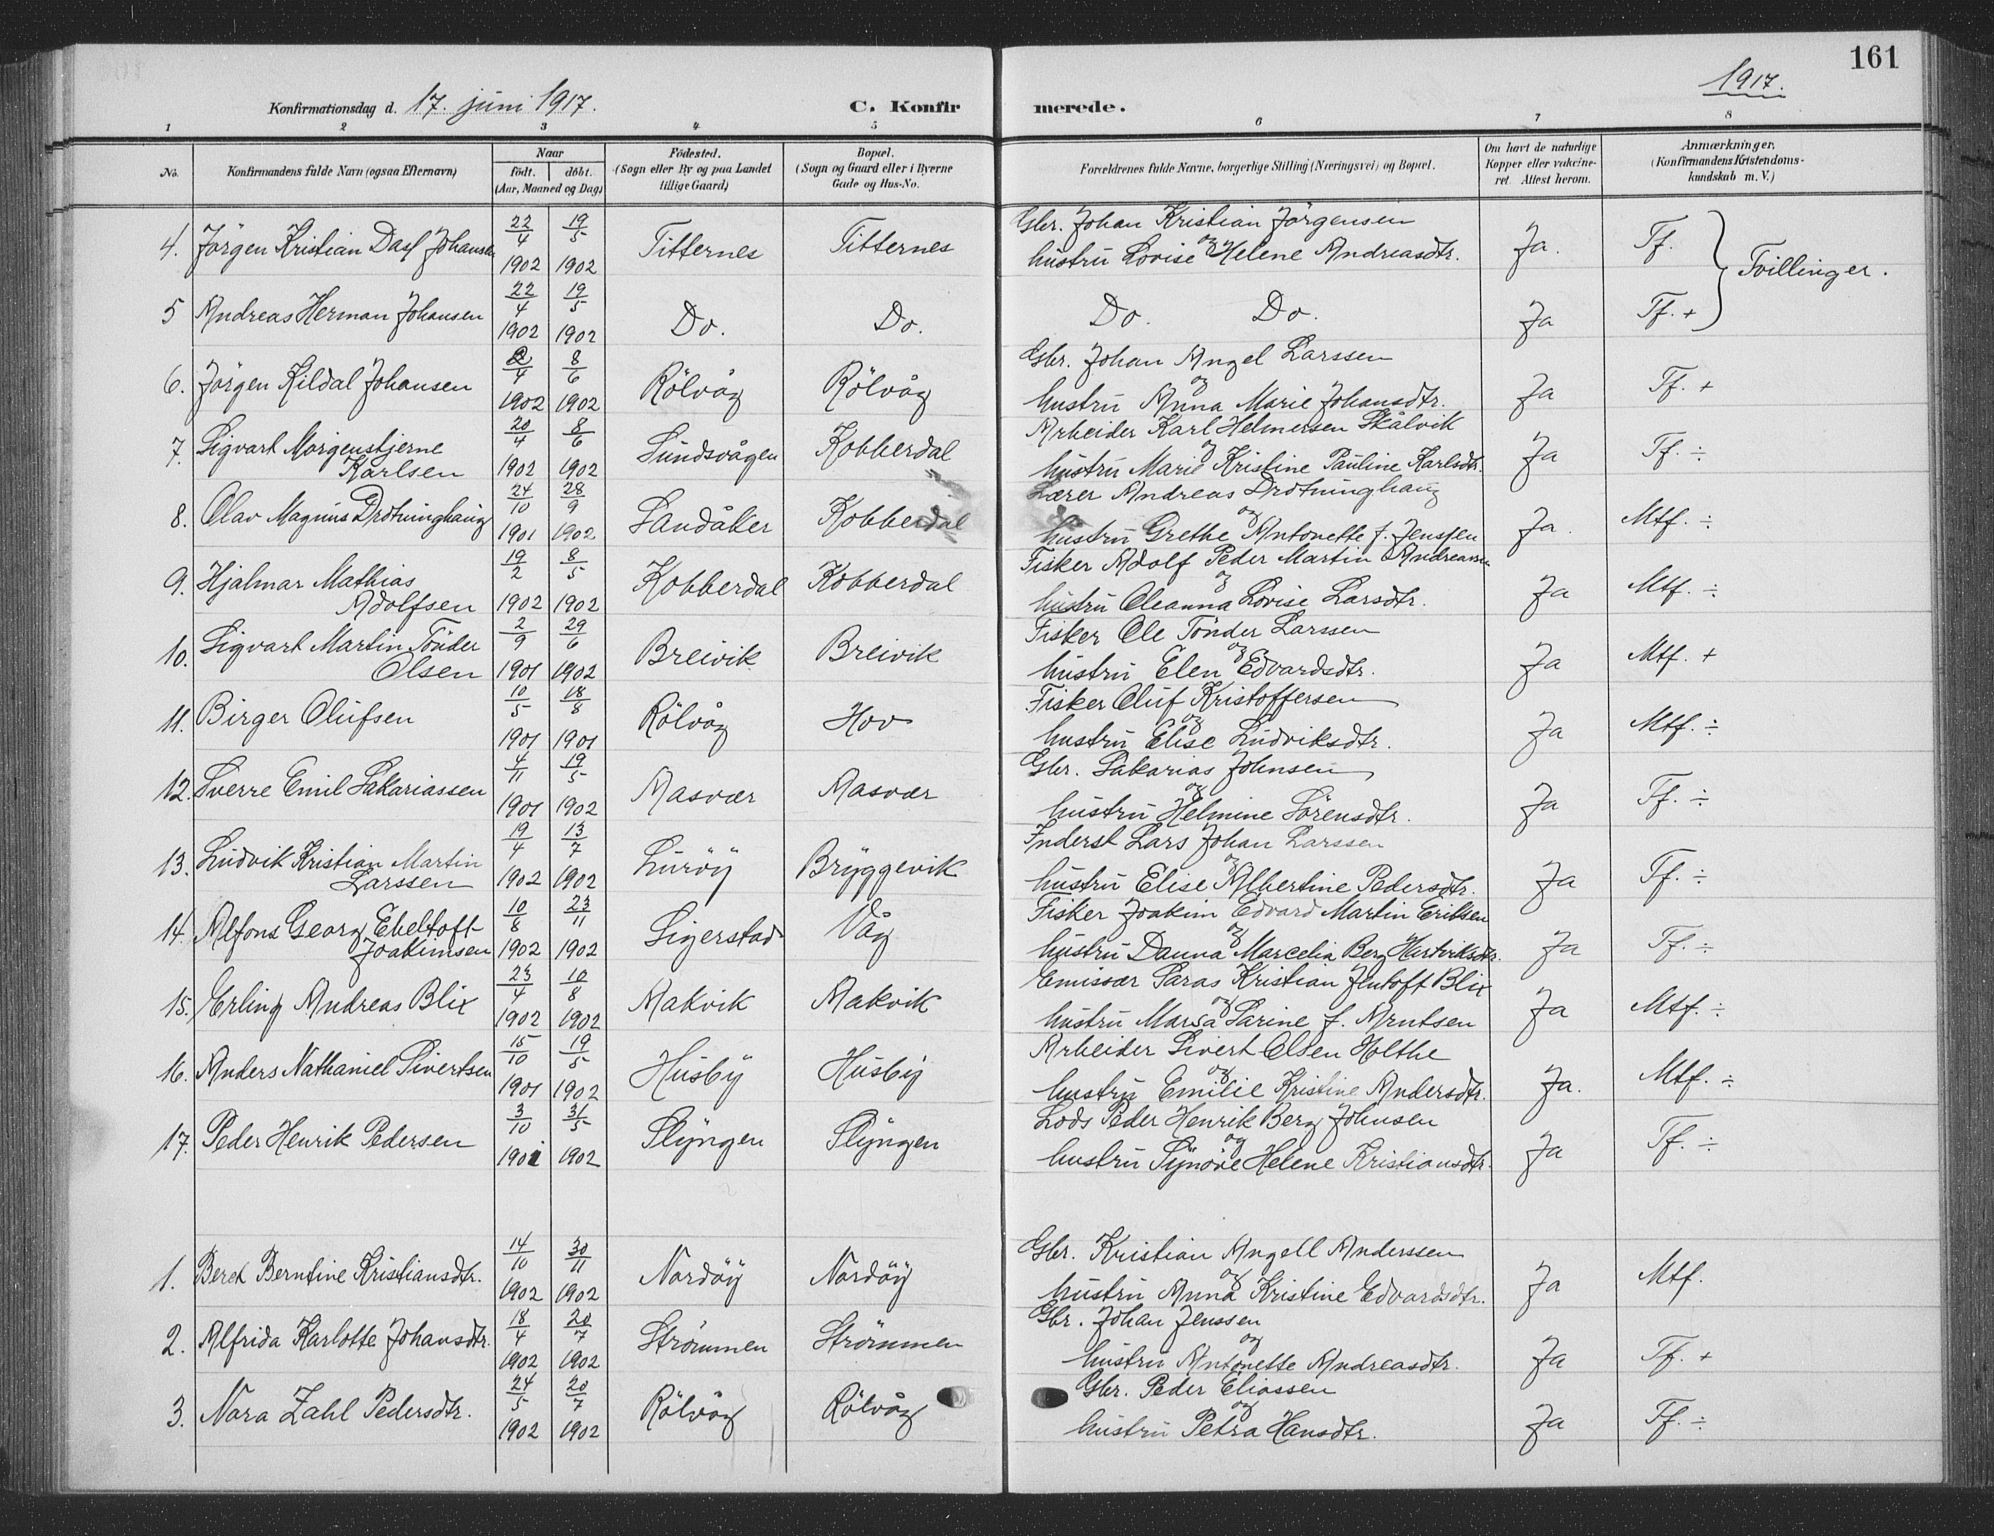 161
1917.
Konfirmationsdag d. 17. juni 1917. C. Konfirmerede.
1 2 3 4 5 6 7 8
No. Konfirmandens fulde Navn (ogsaa Efternavn) Naar født. døbt. (Aar, Maaned og Dag) Fødested. (Sogn eller By og paa Landet tillige Gaard) Bopæl. (Sogn og Gaard eller i Byerne Gade og Hus-No. Forældrenes fulde Navne, borgerlige Stilling (Næringsvei) og Bopæl. Om havt de naturlige Kopper eller vakcineret. Attest herom. Anmærkninger. (Konfirmandens Kristendomskundskab m. V.)
4. Jörgen Kristian Dass Johansen 22/4 1902 19/5 1902 Titternes Titternes Gbr. Johan Kristian Jörgensen og hustru Lovise Helene Andreasdtr. Ja. Tf. Tvillinger.
5 Andreas Herman Johansen 22/4 1902 19/5 1902 Do. Do. Do. Do. Ja Tf. +
6. Jörgen Kildal Johansen 2/4 1902 8/6 1902 Rölvåg Rölvåg Gbr. Johan Angel Larssen og hustru Anna Marie Johansdtr. Ja Tf. +
7. Sigvart Morgenstjerne Karlsen 20/4 1902 8/6 1902 Sundsvågen Kobberdal Arbeider Karl Helmersen Skålvik og hustru Marie Kristine Pauline Karlsdtr. Ja Tf. ÷
8. Olav Magnus Drotninghaug 24/10 1901 28/9 1902 Sandåker Kobberdal Lærer Andreas Drotninghaug og hustru Grethe Antonette f. Jenssen Ja. Mtf. ÷
9. Hjalmar Mathias Adolfsen 19/2 1902 8/5 1902 Kobberdal Kobberdal Fisker Adolf Peder Martin Andreasen og hustru Oleanna Lovise Larsdtr. Ja Mtf. ÷
10. Sigvart Martin Tönder Olsen 2/9 1901 29/6 1902 Breivik Breivik Fisker Ole Tönder Larssen og hustru Elen Edvardsdtr. Ja Mtf. +
11. Birger Olufsen 10/5 1901 18/8 1901 Rölvåg Hov Fisker Oluf Kristoffersen og hustru Elise Ludviksdtr. Ja Mtf. ÷
12. Sverre Emil Sakariassen 4/11 1901 19/5 1902 Masvær Masvær Gbr. Sakarias Johnsen og hustru Helmine Sörensdtr. Ja Tf. ÷
13. Ludvik Kristian Martin Larssen 19/4 1902 13/7 1902 Luröy Bryggevik Inderst Lars Johan Larssen og hustru Elise Albertine Pedersdtr. Ja Tf. ÷
14. Alfons Georg Ebeltoft Joakimsen 10/8 1902 23/11 1902 Sigerstad Våg Fisker Joakim Edvard Martin Eriksen og hustru Danna Marcelia Berg Hartviksdtr. Ja Tf. ÷
15. Erling Andreas Blix 23/4 1902 10/8 1902 Makvik Makvik Emisær Saras Kristian Jentoft Blix og hustru Marsa Sarine f. Arntsen Ja Mtf. ÷
16. Anders Nathaniel Sivertsen 15/10 1901 19/5 1902 Husby Husby Arbeider Sivert Olsen Holthe og hustru Emilie Kristine Andersdtr. Ja. Mtf. ÷
17. Peder Henrik Pedersen 3/10 1901 31/5 1902 Slyngen Slyngen Lods Peder Henrik Berg Johnsen og hustru Synöve Helene Kristiansdtr. Ja Tf. ÷
1. Beret Berntine Kristiansdtr. 14/10 1902 30/11 1902 Nordöy Nordöy Gbr. Kristian Angell Anderssen og hustru Anna Kristine Edvardsdtr. Ja Mtf.
2. Alfrida Karlotte Johansdtr. 18/4 1902 20/7 1902 Strömmen Strömmen Gbr. Johan Jenssen og hustru Antonette Andreasdtr. Ja Tf. +
3. Nora Zahl Pedersdtr. 24/5 1902 20/7 1902 Rölvåg Rölvåg Gbr. Peder Eliassen og hustru Petra Hansdtr. Ja Tf. ÷